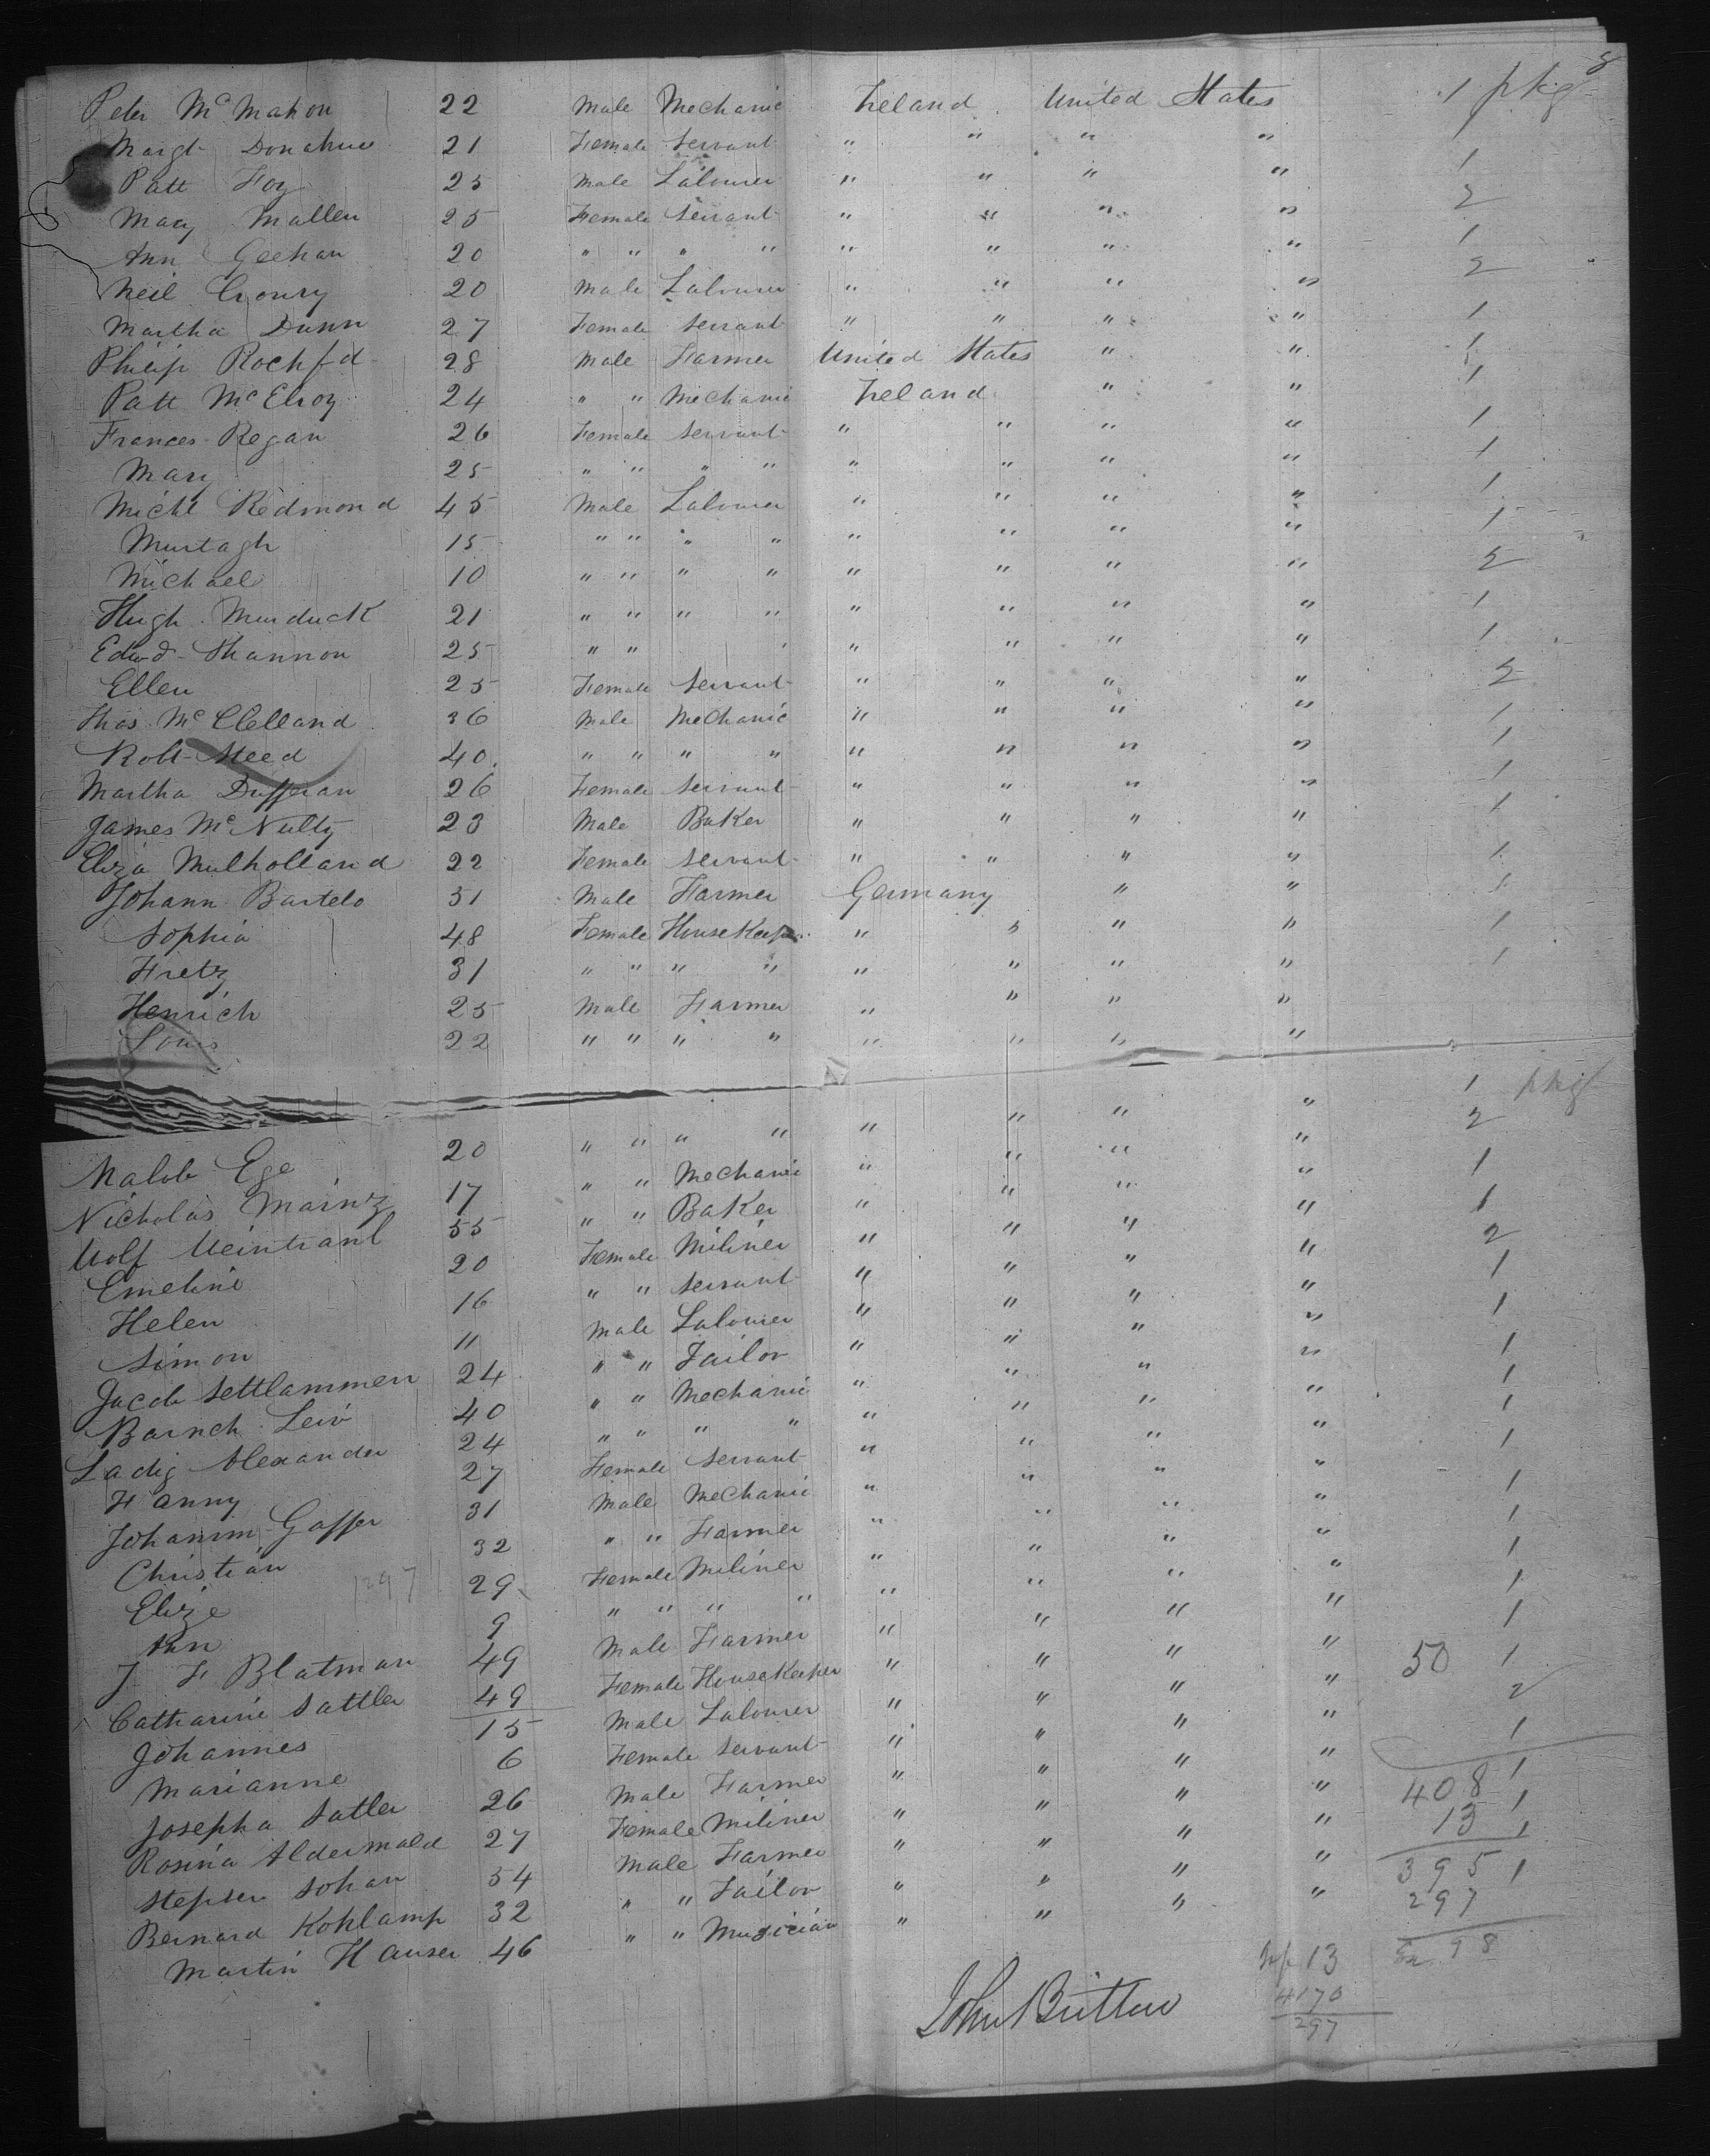 8
Peter McMahon 22 Male Mechanic Ireland United States 1 pkg
Margt Donahue 21 Female Servant " " " " 1
Patt Foy 25 Male Labourer " " " " 1
Mary Mallen 25 Female Servant " " " " 2
Ann Geehan 20 " " " " " " " " 1
Neil Croury 20 Male Labourer " " " " 2
Martha Dunn 27 Female Servant " " " " 1
Philip Rochfd 28 Male Farmer United States " " 1
Patt McElroy 24 " " Mechanic Ireland " " 1
Frances Regan 26 Female Servant " " " " 1
Mary 25 " " " " " " " " 1
Michl Redmond 45 Male Labourer " " " " 1
Murtagh 15 " " " " " " " " 1
Michael 10 " " " " " " " " 2
Hugh Murduck 21 " " " " " " " " 1
Edwd Shannon 25 " " " " " " 1
Ellen 25 Female Servant " " " " 2
Thos McClelland 36 Male Mechanic " " " " 1
Robt Steed 40 " " " " " " " " 1
Martha Dufferan 26 Female Servant " " " " 1
James McNulty 23 Male Baker " " " " 1
Eliza Mulholland 22 Female Servant " " " " 1
Johann Bartelo 51 Male Farmer Germany " " 1
Sophia 48 Female HouseKeeper " " " " 1
Fretz 31 " " " " " " " " 1
Henrich 25 Male Farmer " " " "
Louis 22 " " " " " " " "
1 pkg
Ege 20 " " " " " " " " 2
Nicholas Mainz 17 " " Mechanic " " " " 1
Wolf Weintraul 55 " " Baker " " " " 1
Emeline 20 Female Miliner " " " " 2
Helen 16 " " Servant " " " " 1
Simon 11 Male Labourer " " " " 1
Jacob Settlammen 24 " " Tailor " " " " 1
Barnch Leiv 40 " " Mechanic " " " " 1
Ladig Alexander 24 " " " " " " " " 1
Fanny 27 Female Servant " " " " 1
Johannm Gaffer 31 Male Mechanic " " " " 1
Christian 32 " " Farmer " " " " 1
Elize 297 29 Female Miliner " " " " 1
Ann 9 " " " " " " " " 1
J F Blatman 49 Male Farmer " " " " 1
Catharine Sattler 49 Female HouseKeeper " " " " 50 1
Johannes 15 Male Labourer " " " " 2
Marianne 6 Female Servant " " " " 1
Josepha Satler 26 Male Farmer " " " " 408 1
Rosina Aldermald 27 Female Miliner " " " " 13 1
Stephen Johan 54 Male Farmer " " " " 1
Bernard Kohlamp 32 " " Tailor " " " " 395 1
Martin Hauser 46 " " Musician " " " " 297
98
John Britton
13
4170
297